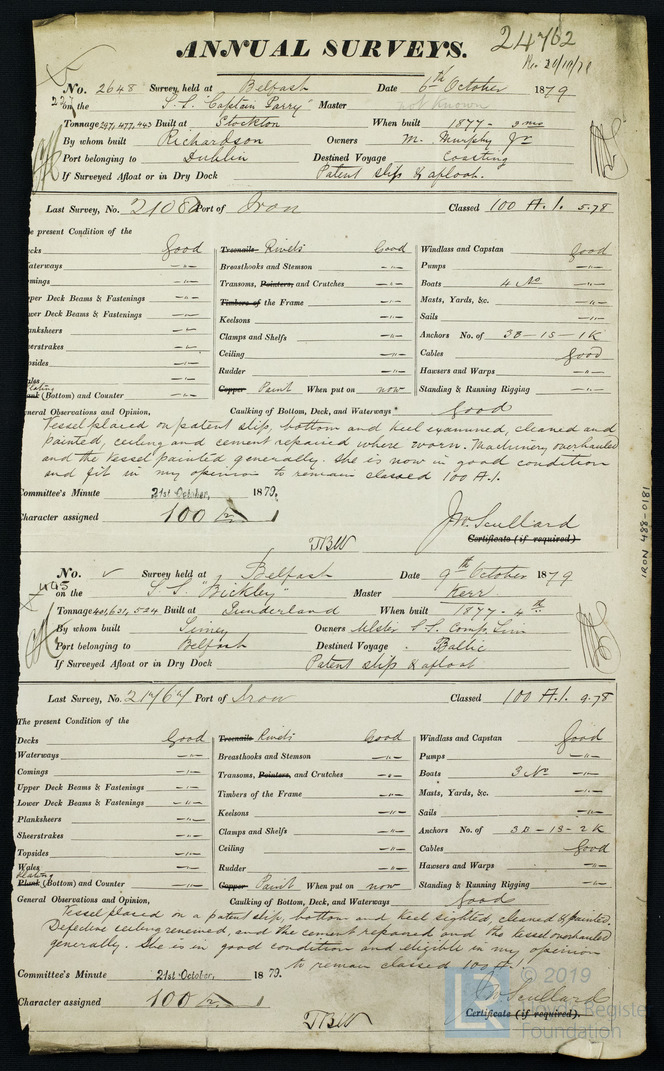 24762
ANNUAL SURVEYS.
No. 2648 Survey held at Belfast Date 6th October 1879
on the S.S. "Captain Parry" Master not known
Tonnage 297, 477, 443 Built at Stockton When built 1877 -
By whom built Richardson Owners M. Murphy Jr
Port belonging to Dublin Destined Voyage Coasting
If Surveyed Afloat or in Dry Dock Patent slip & afloat.
Last Survey, No. Port of Iron Classed 100 A.1. 5.78
The present Condition of the
Decks Good Treenails Rivets Good Windlass and Capstan Good
Waterways -"- Breasthooks and Stemson -"- Pumps -"-
Comings -"- Transoms, Pointers, and Crutches -"- Boats 4 No -"-
Upper Deck Beams & Fastenings -"- Timbers of the Frame -"- Masts, Yards, &c. -"-
Lower Deck Beams & Fastenings -"- Keelsons -"- Sails -"-
Planksheers -"- Clamps and Shelfs -"- Anchors No. of 3B - 1S - 1K
Sheerstrakes -"- Ceiling -"- Cables Good
Topsides -"- Rudder -"- Hawsers and Warps -"-
Wales -"- Copper Paint When put on now Standing & Running Rigging -"-
Plating
Plank (Bottom) and Counter -"-
General Observations and Opinion, Caulking of Bottom, Deck, and Waterways Good
Vessel placed on patent slip, bottom and keel examined, cleaned and
painted, ceiling and cement repaired where worn. Machinery overhauled
and the vessel painted generally. She is now in good condition
and fit in my opinion to remain classed 100 A.1.
Committee's Minute 21st October, 1879.
Character assigned 100 A 1
J.W. Scullard
Certificate (if required)
TBW
No. Survey held at Belfast Date 9th October 1879
on the S.S. "Bickley" Master Kerr
Tonnage 401, 621, 524 Built at Sunderland When built 1877 - 4th
By whom built Owners Ulster S.S. Comp. Lim
Port belonging to Belfast Destined Voyage Baltic
If Surveyed Afloat or in Dry Dock Patent slip & afloat
Last Survey, No. 21767 Port of Iron Classed 100 A.1. 9.78
The present Condition of the
Decks Good Treenails Rivets Good Windlass and Capstan Good
Waterways -"- Breasthooks and Stemson -"- Pumps -"-
Comings -"- Transoms, Pointers, and Crutches -"- Boats 3 No -"-
Upper Deck Beams & Fastenings -"- Timbers of the Frame -"- Masts, Yards, &c. -"-
Lower Deck Beams & Fastenings -"- Keelsons -"- Sails -"-
Planksheers -"- Clamps and Shelfs -"- Anchors No. of 3B - 1S - 2K
Sheerstrakes -"- Ceiling -"- Cables Good
Topsides -"- Rudder -"- Hawsers and Warps -"-
Wales -"- Copper Paint When put on now Standing & Running Rigging -"-
Plating
Plank (Bottom) and Counter -"-
General Observations and Opinion, Caulking of Bottom, Deck, and Waterways Good
Vessel placed on a patent slip, bottom and keel sighted, cleaned & painted.
Defective ceiling renewed, and the cement repaired and the vessel overhauled
generally. She is in good condition and eligible in my opinion
to remain classed 100 A.1
Committee's Minute 21st October, 1879.
Character assigned 100 A 1
J.W. Scullard
Certificate (if required).
TBW
IRON 488-0181
© 2019
Lloyd's Register
Foundation